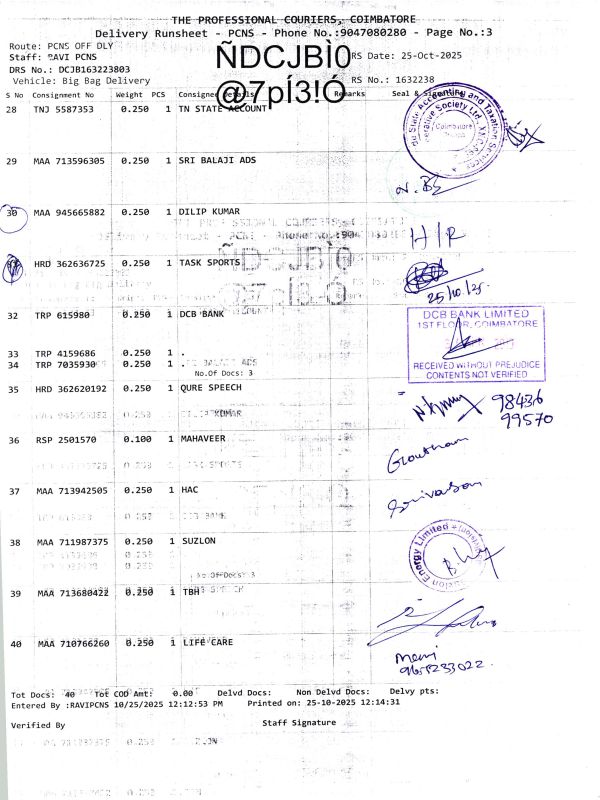 THE PROFESSIONAL COURIERS, COIMBATORE
Delivery Runsheet - PCNS - Phone No.:9047080280 - Page No.:3
Route: PCNS OFF DLY
Staff: RAVI PCNS
RS Date: 25-Oct-2025
DRS No.: DCJB163223803
ÑDCJBÌ0
Vehicle: Big Bag Delivery
@7pÍ3!Ó
RS No.: 1632238
S No Consignment No Weight PCS Consignee Details Remarks Seal & Signature
28 TNJ 5587353 0.250 1 TN STATE ACCOUNT
29 MAA 713596305 0.250 1 SRI BALAJI ADS
30 MAA 945665882 0.250 1 DILIP KUMAR
H/R
HRD 362636725 0.250 1 TASK SPORTS
25/10/25
32 TRP 615980 0.250 1 DCB BANK
DCB BANK LIMITED
1ST FLOOR, COIMBATORE
RECEIVED WITHOUT PREJUDICE
CONTENTS NOT VERIFIED
33 TRP 4159686 0.250 1 .
34 TRP 7035930 0.250 1 .
No.Of Docs: 3
35 HRD 362620192 0.250 1 QURE SPEECH
98436
99570
36 RSP 2501570 0.100 1 MAHAVEER
Goutham
37 MAA 713942505 0.250 1 HAC
Srivasan
38 MAA 711987375 0.250 1 SUZLON
Energy Limited
39 MAA 713680422 0.250 1 TBH
40 MAA 710766260 0.250 1 LIFE CARE
Mani
9655233022.
Tot Docs: 40 Tot COD Amt: 0.00 Delvd Docs: Non Delvd Docs: Delvy pts:
Entered By :RAVIPCNS 10/25/2025 12:12:53 PM Printed on: 25-10-2025 12:14:31
Verified By Staff Signature